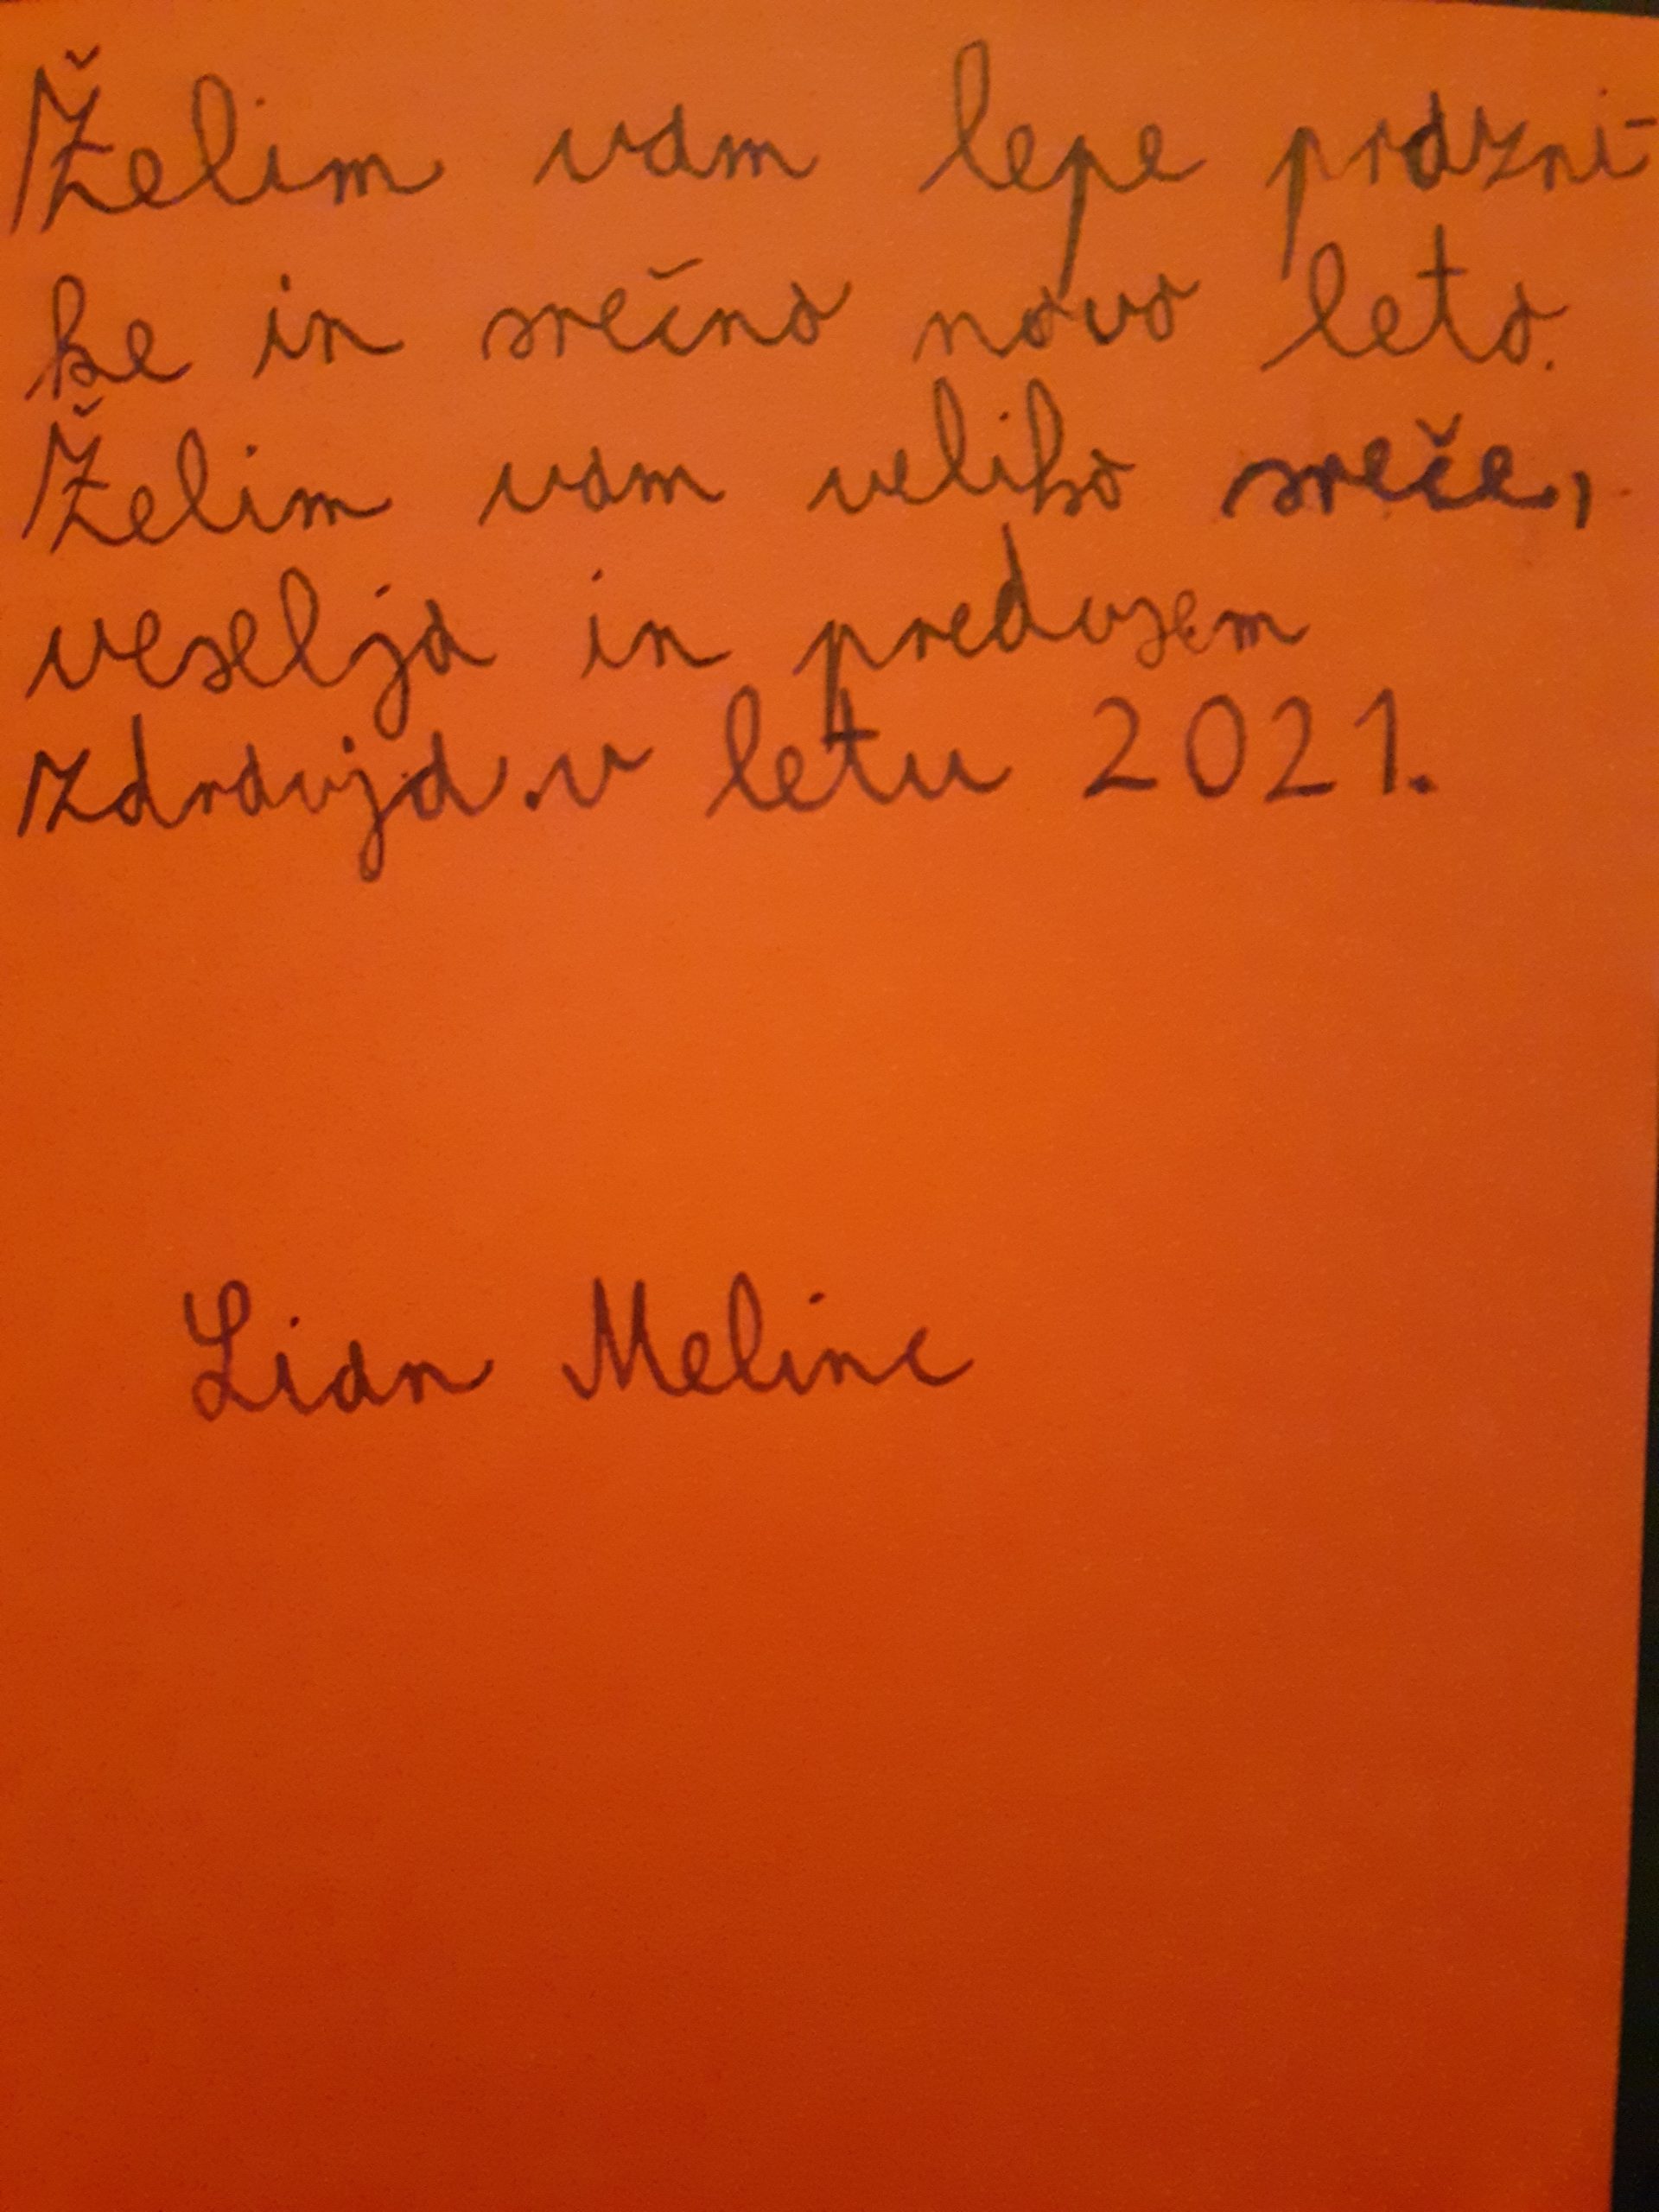 Želim vam lepe prazni-
ke in srečno novo leto.
Želim vam veliko sreče,
veselja in predvsem
zdravja.v letu 2021.
Lian Melinc